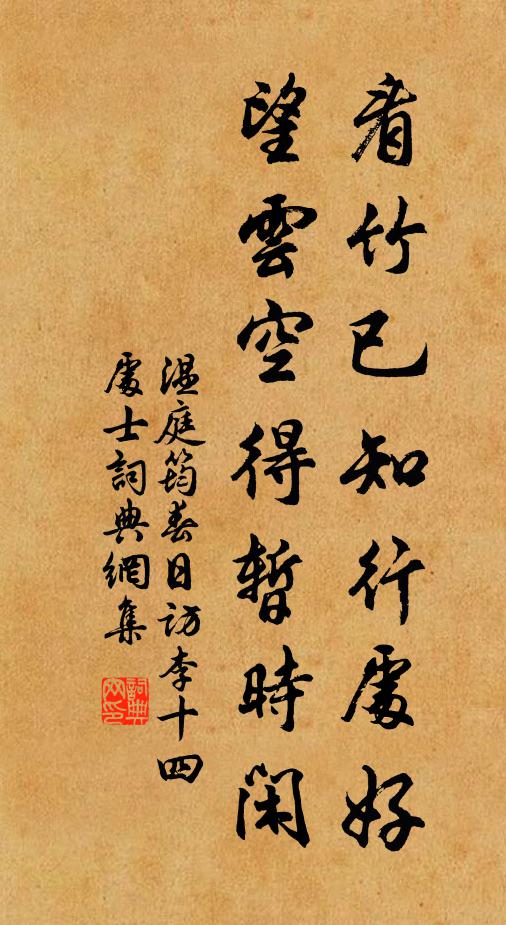 看竹已知行處好
望雲空得暫時閑
温庭筠春日訪李十四
處士詞典網集
詞典网印